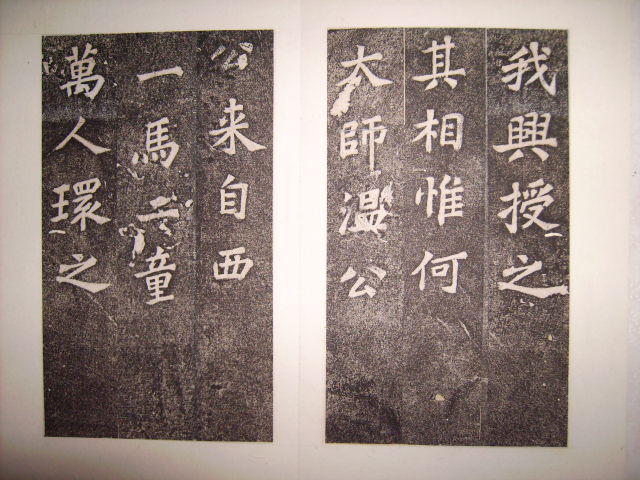 我興授之
其相惟何
太師溫公
公来自西
一馬二童
萬人環之